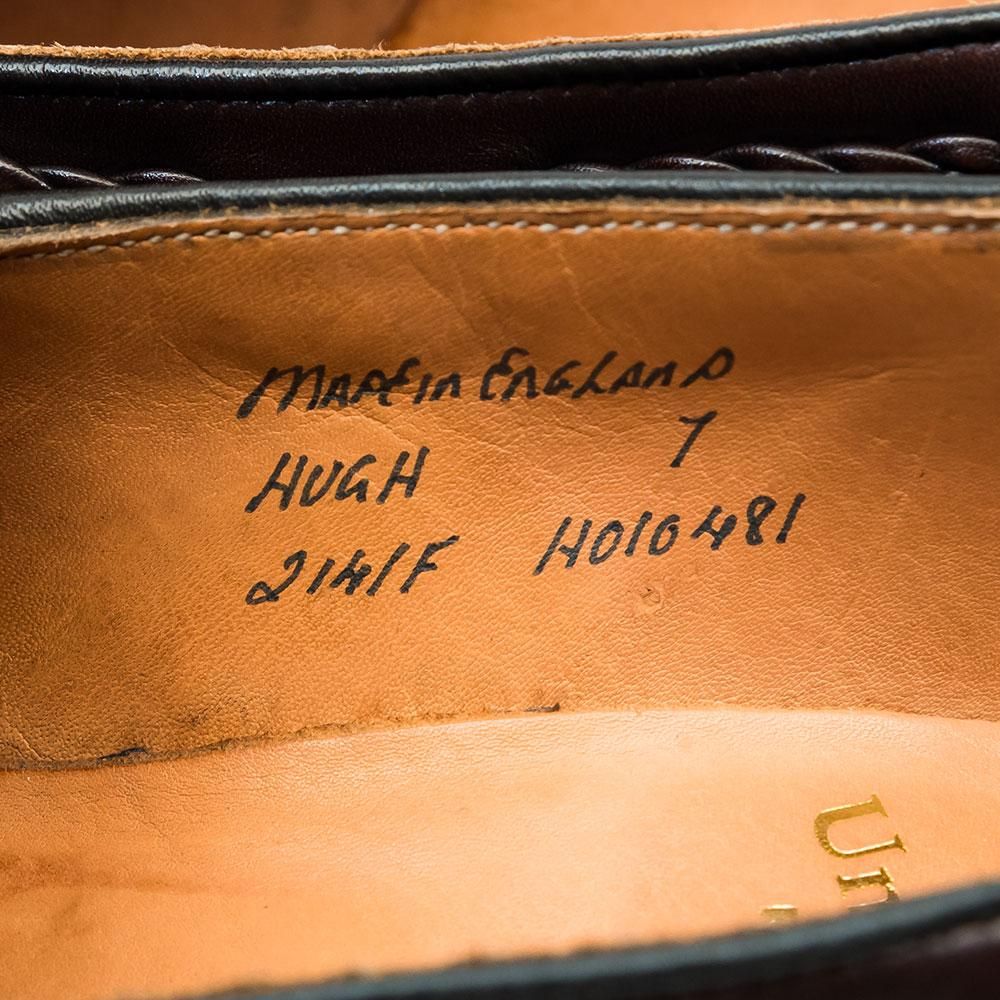 MADE in ENGLAND
HUGH 7
2141F H010481
Un